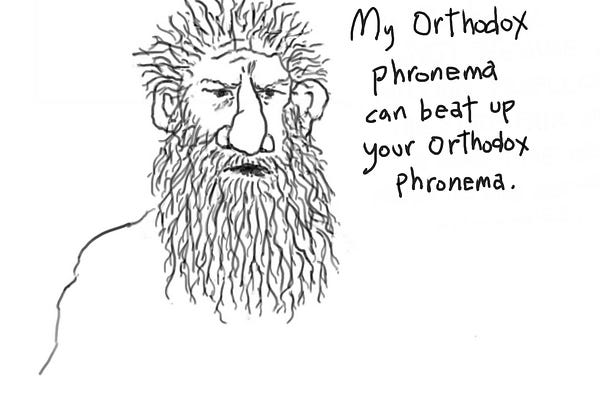 My Orthodox
phronema
can beat up
your Orthodox
phronema.